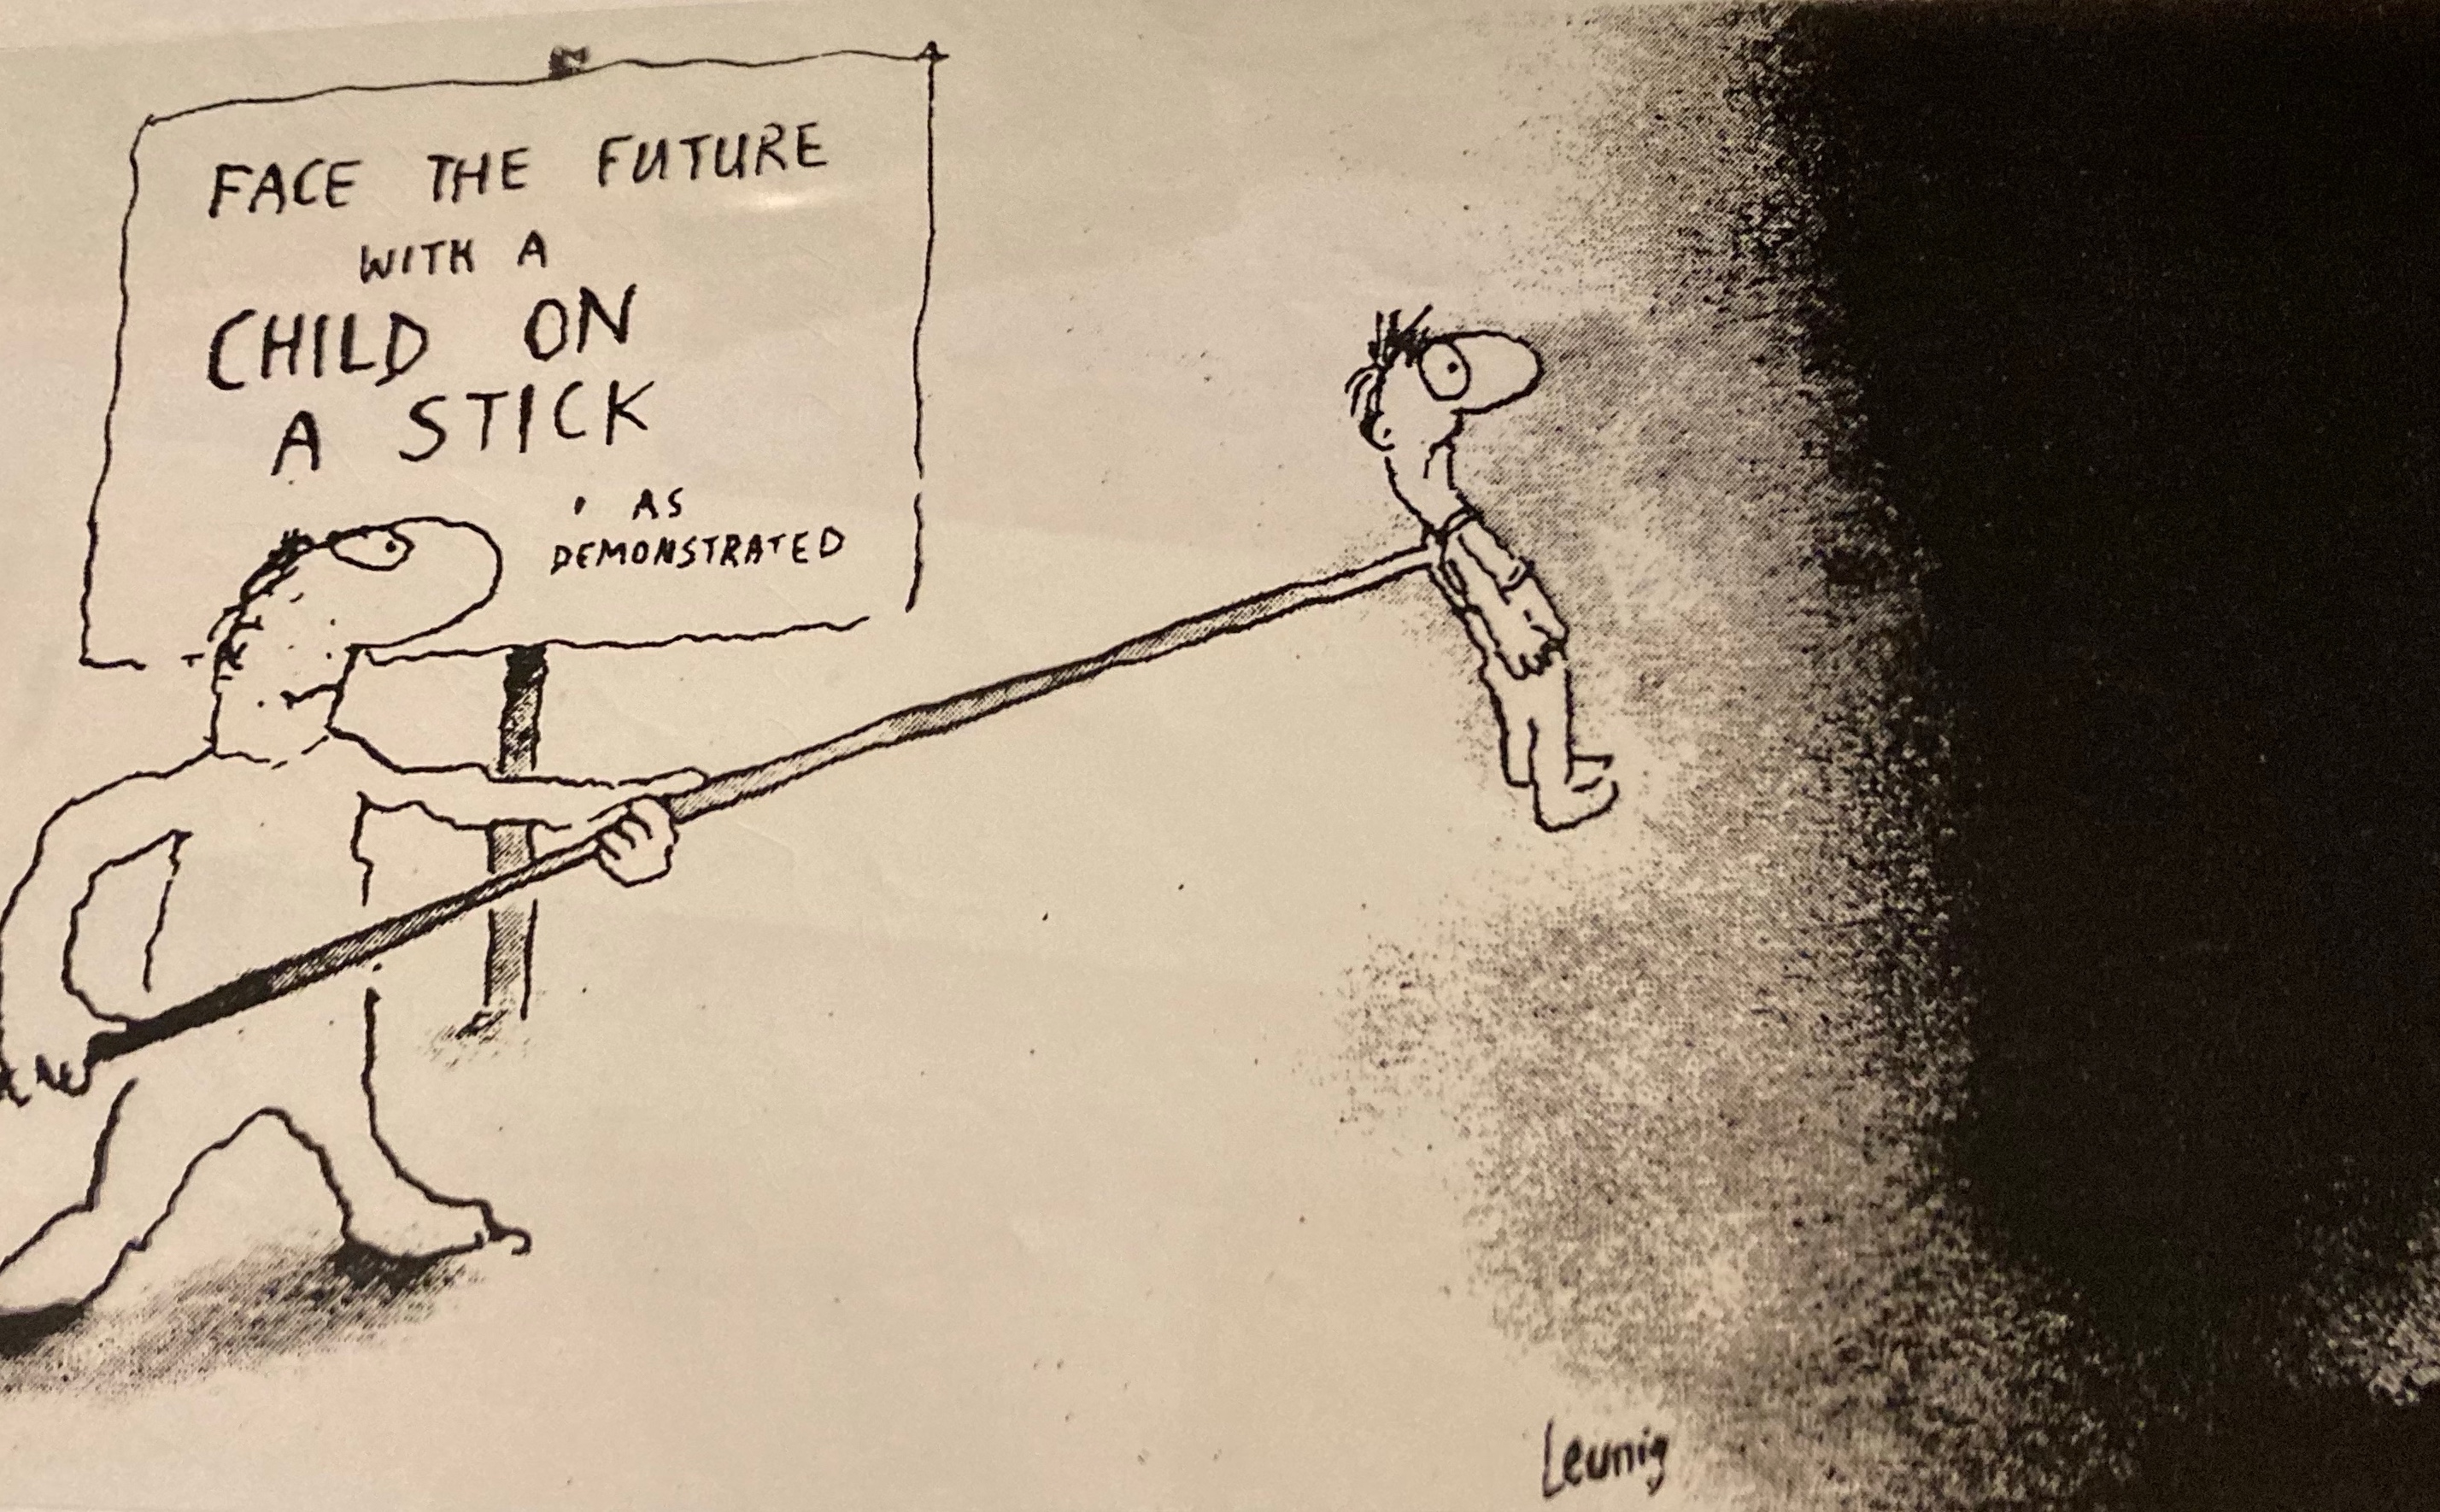 FACE THE FUTURE
WITH A
CHILD ON
A STICK
• AS
DEMONSTRATED
Leunig